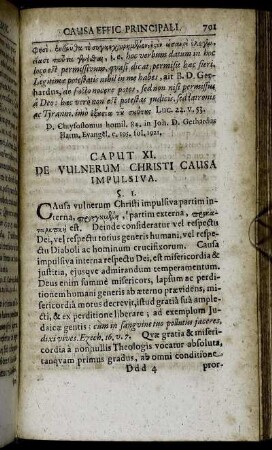 CAUSA EFFIC PRINCIPALI. 791
hoc verbum datum in hoc
loco est permissivum, quasi dicat, permissit hæc fieri.
Legitimæ potestatis nihil in me habes, ait B. D. Ger-
hardus, ac facito novare potes, sed non nisi permissu
à Deo: hæc vero non est potestas judicis, sed latronis
ac Tyranni, imò Luc. 22. v. 53.
D. Chrysostomus homil. 84. in Joh. D. Gerhardus
Harm. Evangel. c. 195. fol. 1921.
CAPUT XI.
DE VULNERUM CHRISTI CAUSA
IMPULSIVA.
§. I.
Causa vulnerum Christi impulsiva partim in-
terna, partim externa,
est. Deinde consideratur vel respectu
Dei, vel respectu totius generis humani, vel respe-
ctu Diaboli ac hominum crucifixorum. Causa
impulsiva interna respectu Dei, est misericordia &
justitia, ejusque admirandum temperamentum.
Deus enim summè misericors, lapsum ac per-
ditionem humani generis ab æterno prævidens, mi-
sericordiâ motus decrevit, istud gratiâ suâ ample-
cti, & ex perditione liberare; ad exemplum Ju-
daicæ gentis: cùm in sanguine tuo pollutus jaceres,
dixi vives. Ezech. 16. v. 7. Quæ gratia & miseri-
cordia à nonnullis Theologis vocatur absoluta,
tanquam primus gradus, ab omni conditione
Ddd 4 pror-